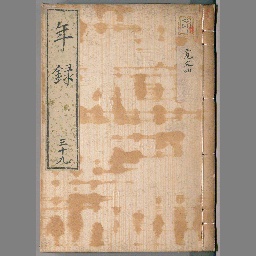 年録
三十九
寛文四